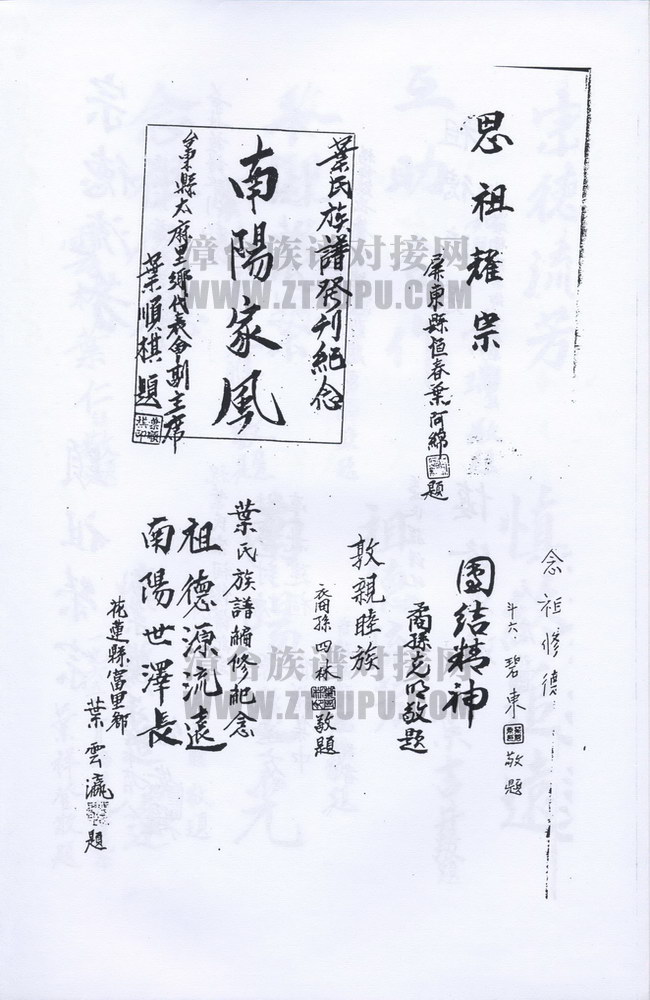 思祖耀宗
屏東縣恒春葉阿綿題
葉氏族譜發刊紀念
南陽家風
台東縣太麻里鄉代表會副主席
葉順棋題
念祖修德
斗六碧東敬題
團結精神
裔孫克明敬題
敦親睦族
裔孫四林敬題
葉氏族譜編修紀念
祖德源流遠
南陽世澤長
花蓮縣富里鄉
葉雲瀛題
漳台族谱对接网
WWW.ZTZUPU.COM
漳台族谱对接网
WWW.ZTZUPU.COM